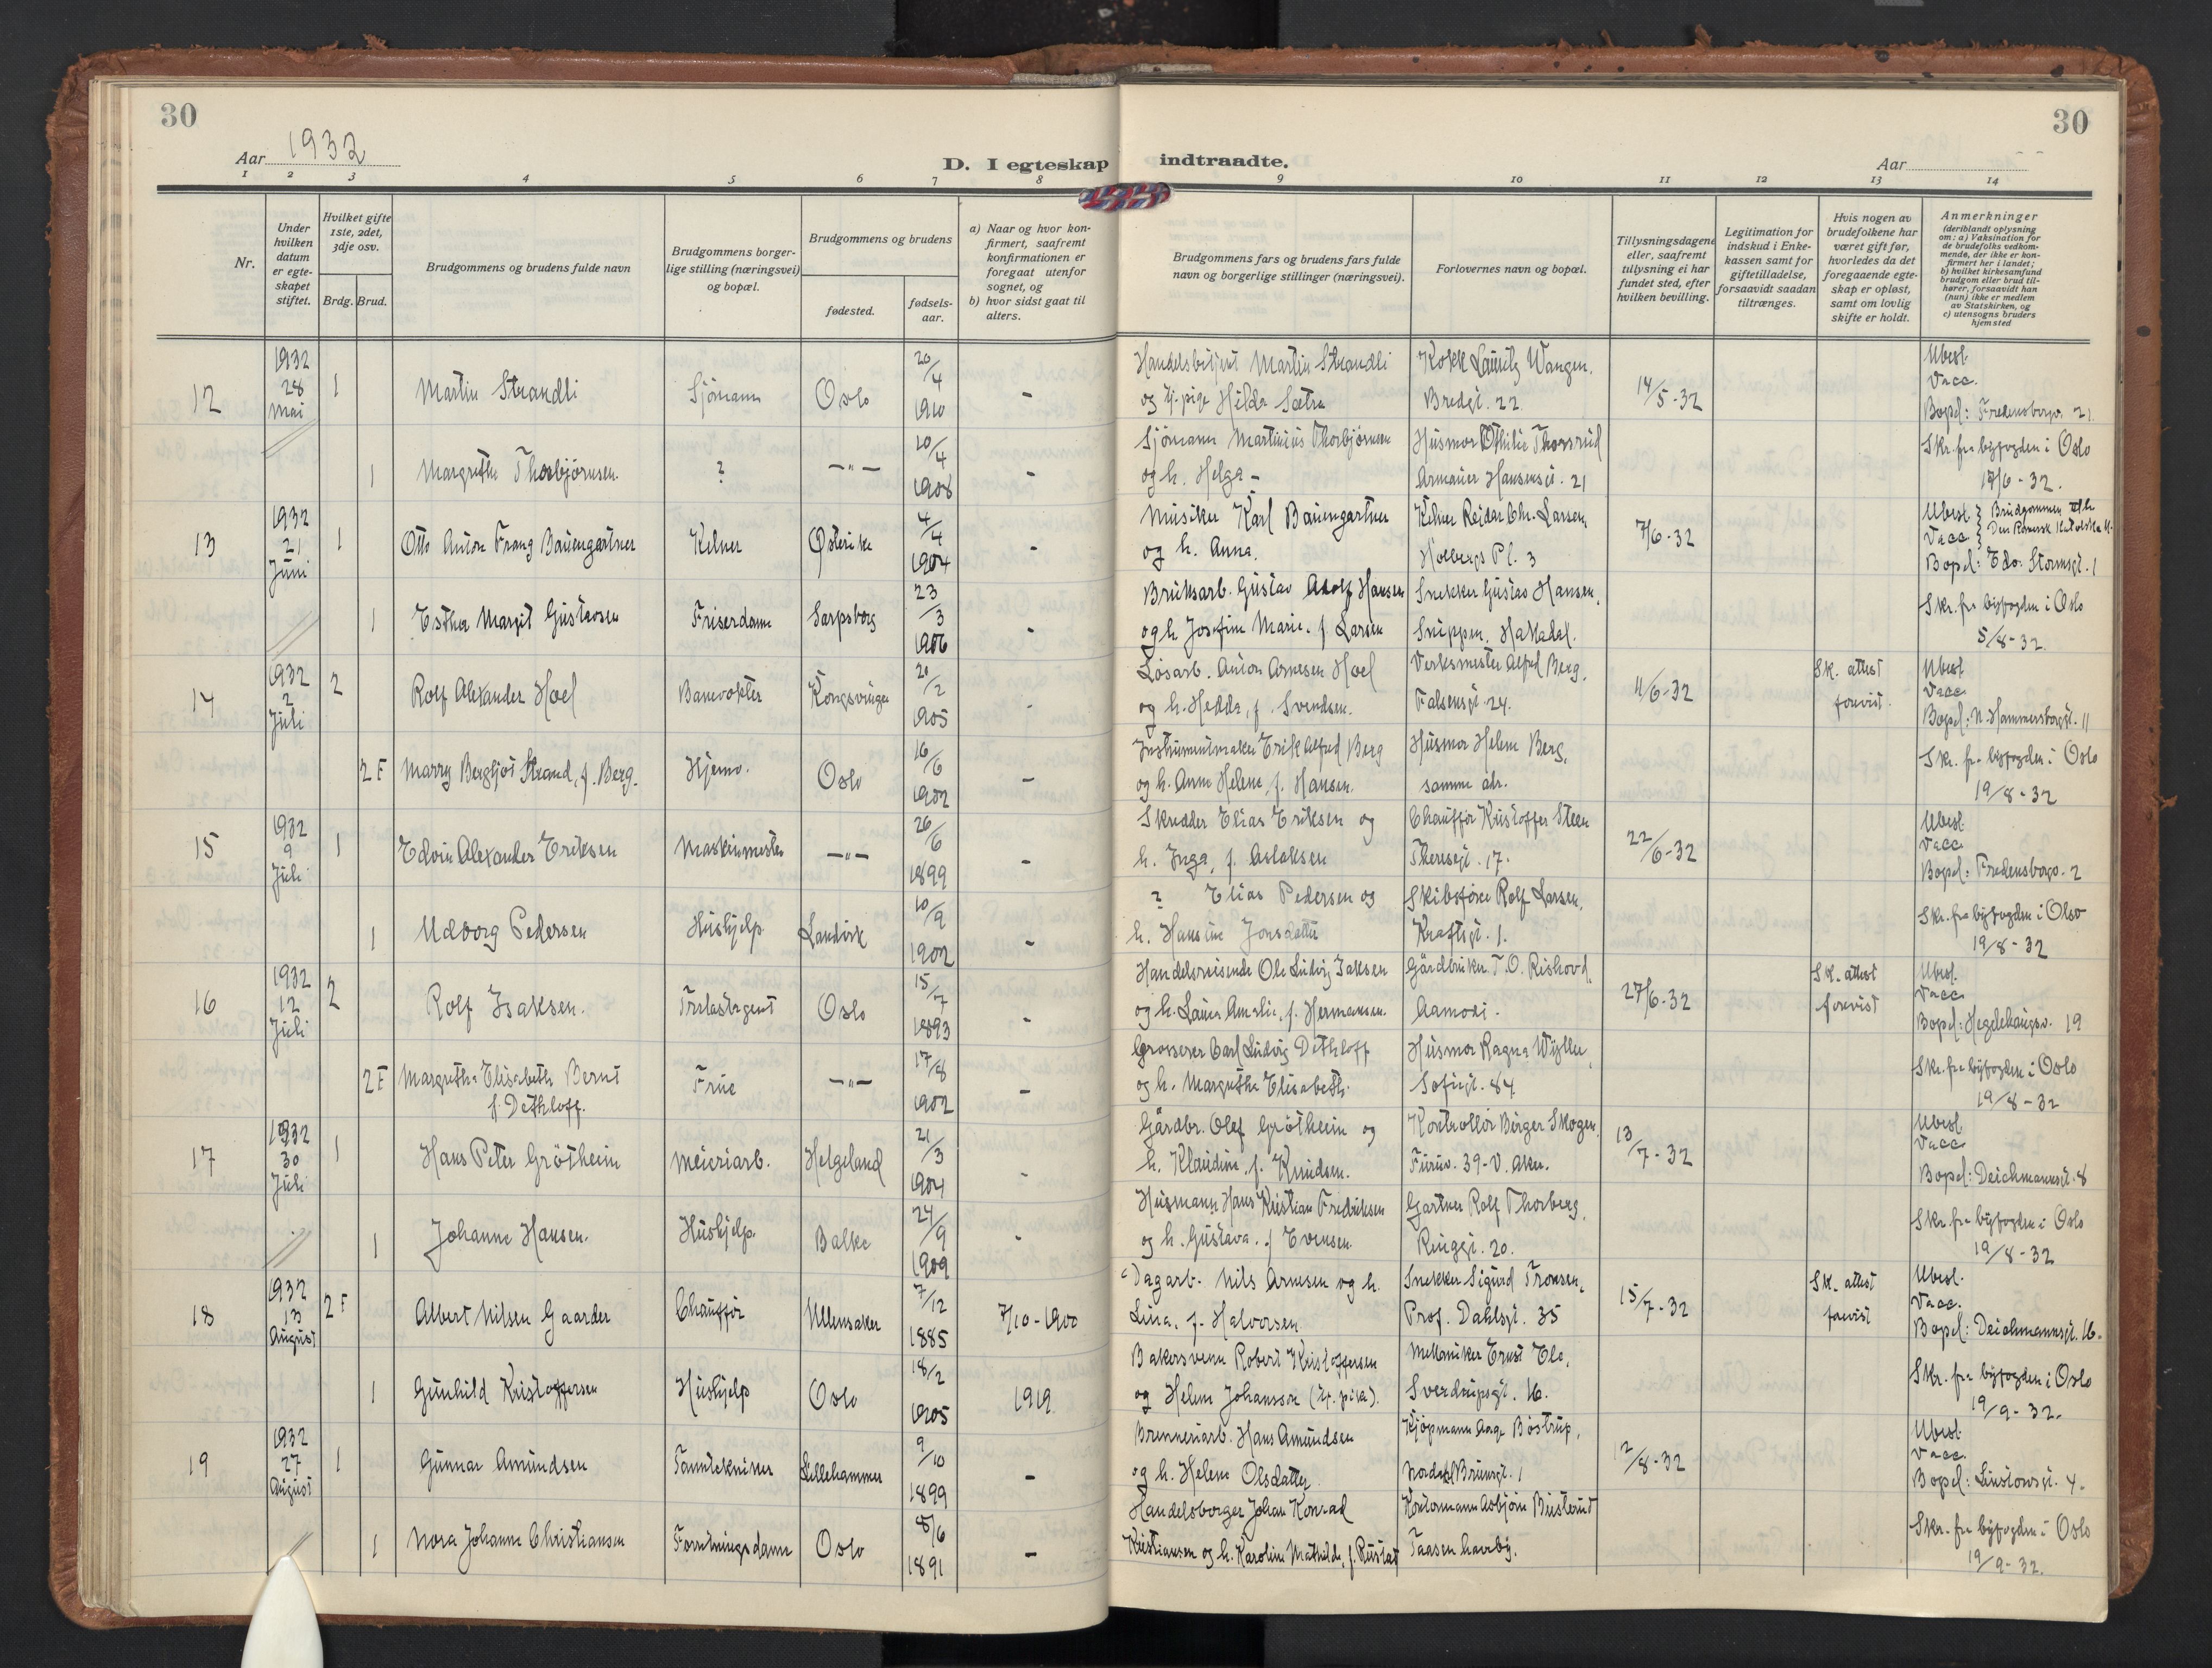 30
30
Aar 1932
D. I egteskap indtraadte.
Aar
1 2 3 4 5 6 7 8 9 10 11 12 13 14
Nr.
Under hvilken datum er egteskapet stiftet.
Hvilket gifte 1ste, 2det, 3dje osv.
Brdg. Brud.
Brudgommens og brudens fulde navn
Brudgommens borgerlige stilling (næringsvei) og bopæl.
Brudgommens og brudens
fødested.
fødselsaar.
a) Naar og hvor konfirmert, saafremt konfirmationen er foregaat utenfor sognet, og
b) hvor sidst gaat til alters.
Brudgommens fars og brudens fars fulde navn og borgerlige stillinger (næringsvei).
Forlovernes navn og bopæl.
Tillysningsdagene eller, saafremt tillysning ei har fundet sted, efter hvilken bevilling.
Legitimation for indskud i Enkekassen samt for giftetilladelse, forsaavidt saadan tiltrænges.
Hvis nogen av brudefolkene har været gift før, hvorledes da det foregaaende egteskap er opløst, samt om lovlig skifte er holdt.
Anmerkninger (deriblandt oplysning om: a) Vaksination for de brudefolks vedkommende, der ikke er konfirmert her i landet; b) hvilket kirkesamfund brudgom eller brud tilhører, forsaavidt han (hun) ikke er medlem av Statskirken, og c) utensogns bruders hjemsted
12 1932 28 Mai 1 Martin Strandli Sjömann Oslo 20/4 1910 - Martin Strandli og Hilda Sætra Kokk Lauritz Wangen, Bredgt. 22. 14/5-32 Ubesl. Vacc. Bopel: Fredensborgv. 21.
1 Margrethe Thorbjørnsen. ? -"- 10/4 1908 - Sjømann Martinius Thorbjørnsen og h. Helga - Husmor Othilie Thorsrud Armauer Hansensgt. 21 Skr. fra byfogden i Oslo 17/6-32.
13 1932 21 Juni 1 Otto Anton Franz Baumgartner Kelner Østerike 4/4 1904 - Musiker Karl Baumgartner og h. Anna. Kelner Reidar Chr. Larsen, Holbergs Pl. 3 7/6-32 Ubesl. Vacc. Brudgommen tilh. Den Romersk Katolske K. Bopel: Edv. Stormsgt. 1
1 Esther Margit Gustavsen Friserdame Sarpsborg 23/3 1906 - Bruksarb. Gustav Adolf Hansen og h. Josefine Marie, f. Larsen Snekker Gustav Hansen, Snippen, Hakadal. Skr. fra byfogden i Oslo 5/8-32.
14 1932 2 Juli 2 Rolf Alexander Hoel Banevokter Kongsvinger 20/2 1905 - Løsarb. Anton Arnesen Hoel og h. Hedda, f. Svendsen. Verksmester Alfred Berg, Falsensgt. 24. 11/6-32 Sk. attest forevist. Ubesl. Vacc. Bopel: N. Hammersborggt. 11
2 F Marry Bergljot Strand, f. Berg. Hjemv. Oslo 16/6 1902 - Instrumentmaker Erik Alfred Berg og h. Anne Helene, f. Hansen. Husmor Helene Berg, samme adr. Skr. fra byfogden i Oslo 19/8-32
15 1932 9 Juli 1 Edvin Alexander Eriksen Maskinmester -"- 26/6 1899 - Skredder Elias Eriksen og h. Inga, f. Aslaksen Chauffør Kristoffer Steen Theresegt. 17. 22/6-32 Ubesl. Vacc. Bopel: Fredensborgv. 2
1 Udborg Pedersen Hushjelp Landvik 10/9 1902 - ? Elias Pedersen og h. Hansine Jonsdatter Skibsfører Rolf Larsen, Kraftsgt. 1. Skr. fra byfogden i Oslo 19/8-32
16 1932 12 Juli 2 Rolf Isaksen. Trelastagent Oslo 15/7 1893 - Handelsreisende Ole Ludvig Isaksen og h. Laura Amalie, f. Hermansen. Gårdbruker T.O. Rishovd, Aamodt. 27/6-32 Sk. attest forevist Ubesl. Vacc. Bopel: Hegdehaugsv. 19
2 F Margrethe Elisabeth Bernt f. Dethloff. Frue -"- 17/8 1902 - Grosserer Carl Ludvig Dethloff og h. Margrethe Elisabeth. Husmor Ragna Wyller, Sofiegt. 84. Skr. fra byfogden i Oslo 19/8-32
17 1932 30 Juli 1 Hans Peter Grötheim Meieriarb. Helgeland 21/3 1904 - Gårdbr. Olef Grötheim og h. Klaudine, f. Knudsen. Kontrollör Birger Skogen, Furuv. 39 - V. Aker. 13/7-32 Ubesl. Vacc. Bopel: Deichmannsgt. 8
1 Johanne Hansen. Hushjelp. Balke 24/9 1909 - Husmann Hans Kristian Fredriksen og h. Gustava, f. Evensen. Gartner Rolf Thorberg, Ringgt. 20. Skr. fra byfogden i Oslo 19/8-32
18 1932 13 August 2 F Albert Nilsen Gaarder Chauffør Ullensaker 7/12 1885 7/10-1900 Dagarb. Nils Arnesen og h. Lina, f. Halvorsen. Snekker Sigurd Tronsen, Prof. Dahlsgt. 35 15/7-32 Sk. attest forevist Ubesl. Vacc. Bopel: Deichmannsgt. 16.
1 Gunhild Kristoffersen Hushjelp Oslo 18/2 1905 1919 Bakersvenn Robert Kristoffersen og Helene Johansson Mekaniker Ernst Elo, Sverdrupsgt. 16. Skr. fra byfogden i Oslo 19/9-32.
19 1932 27 August 1 Gunnar Amundsen Tanntekniker Lillehammer 9/10 1899 - Brenneriarb. Hans Amundsen og h. Helene Olsdatter. Kjøpmann Aage Bostrup, Nordahl Brunsgt. 1 12/8-32 Ubesl. Vacc. Bopel: Linstowsgt. 4.
1 Nora Johanne Christiansen Forretningsdame Oslo 8/6 1891 - Handelsborger Johan Konrad Kristiansen og h. Karoline Mathilde, f. Rustad Kontormann Asbjörn Busterud Taasen haveby. Skr. fra byfogden i Oslo 19/9-32.